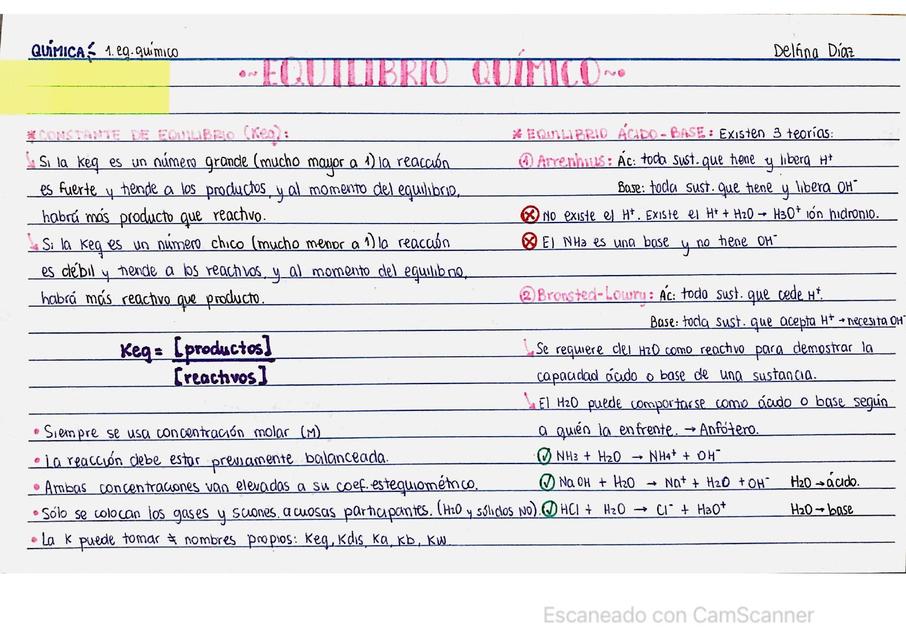 QUÍMICA: 1. eq. químico
Delfina Díaz
•~EQUILIBRIO QUÍMICO~•
*CONSTANTE DE EQUILIBRIO (Keq):
↳ Si la Keq es un número grande (mucho mayor a 1) la reacción
es fuerte y tiende a los productos, y al momento del equilibrio,
habrá más producto que reactivo.
↳ Si la Keq es un número chico (mucho menor a 1) la reacción
es débil y tiende a los reactivos, y al momento del equilibrio,
habrá más reactivo que producto.
Keq = [productos]
[reactivos]
• Siempre se usa concentración molar (M)
• La reacción debe estar previamente balanceada.
• Ambas concentraciones van elevadas a su coef. estequiométrico.
• Sólo se colocan los gases y sciones. acuosas participantes. (H2O y sólidos NO).
• La K puede tomar ≠ nombres propios: Keq, Kdis, Ka, Kb, Kw
* EQUILIBRIO ÁCIDO-BASE: Existen 3 teorías:
① Arrenhius: Ác: toda sust. que tiene y libera H⁺
Base: toda sust. que tiene y libera OH⁻
⊗ No existe el H⁺. Existe el H⁺ + H2O → H3O⁺ ión hidronio.
⊗ El NH3 es una base y no tiene OH⁻
② Bronsted-Lowry: Ác: toda sust. que cede H⁺.
Base: toda sust. que acepta H⁺ → necesita OH⁻
↳ Se requiere del H2O como reactivo para demostrar la
capacidad ácido o base de una sustancia.
↳ El H2O puede comportarse como ácido o base según
a quién la enfrente. → Anfótero.
✓ NH3 + H2O → NH4⁺ + OH⁻
✓ NaOH + H2O → Na⁺ + H2O + OH⁻ H2O → ácido.
✓ HCl + H2O → Cl⁻ + H3O⁺ H2O → base
Escaneado con CamScanner